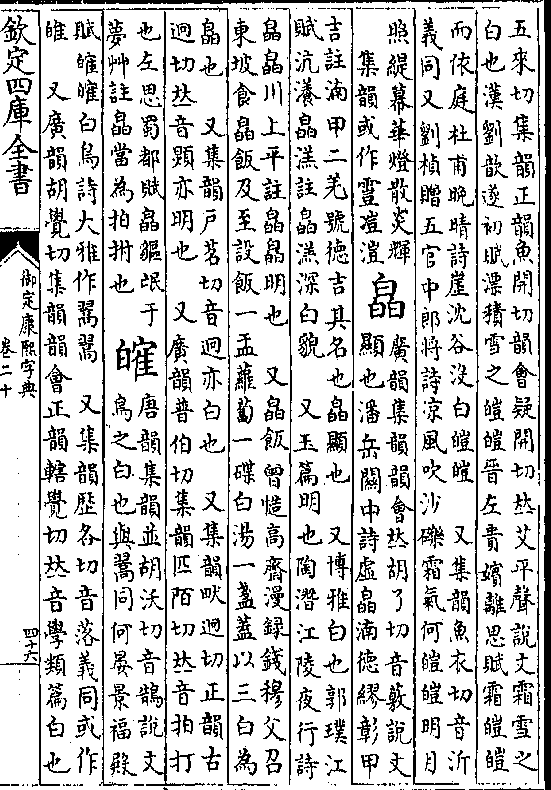 五來切集韻正韻魚開切韻會疑開切𠀤艾平聲說文霜雪之
白也漢劉歆遂初賦漂積雪之皚皚晉左貴嬪離思賦霜皚皚
而依庭杜甫晚晴詩崖沈谷没白皚皚 又集韻魚衣切音沂
義同又劉楨贈五官中郎將詩凉風吹沙礫霜氣何皚皚明月
照緹幕華燈散炎輝
集韻或作䨚凒溰
皛
廣韻集韻韻會𠀤胡了切音㪋說文
顯也潘岳關中詩虛皛湳德繆彰甲
吉註湳甲二羌號德吉其名也皛顯也 又博雅白也郭璞江
賦沆瀁皛溔註皛溔深白貌 又玉篇明也陶潛江陵夜行詩
皛皛川上平註皛皛明也 又皛飯曾慥高齋漫録錢穆父召
東坡食皛飯及至設飯一盂蘿蔔一碟白湯一盞蓋以三白為
皛也 又集韻戶茗切音迥亦白也 又集韻畎迥切正韻古
迥切𠀤音熲亦明也 又廣韻普伯切集韻匹陌切𠀤音拍打
也左思蜀都賦皛貙氓于
夢艸註皛當為拍拊也
㿥
唐韻集韻並胡沃切音鵠說文
鳥之白也與翯同何晏景福殿
賦㿥㿥白鳥詩大雅作翯翯 又集韻歷各切音落義同或作
又廣韻胡覺切集韻韻會正韻轄覺切𠀤音學類篇白也
欽定四庫全書
御定康熙字典
卷二十
四十六